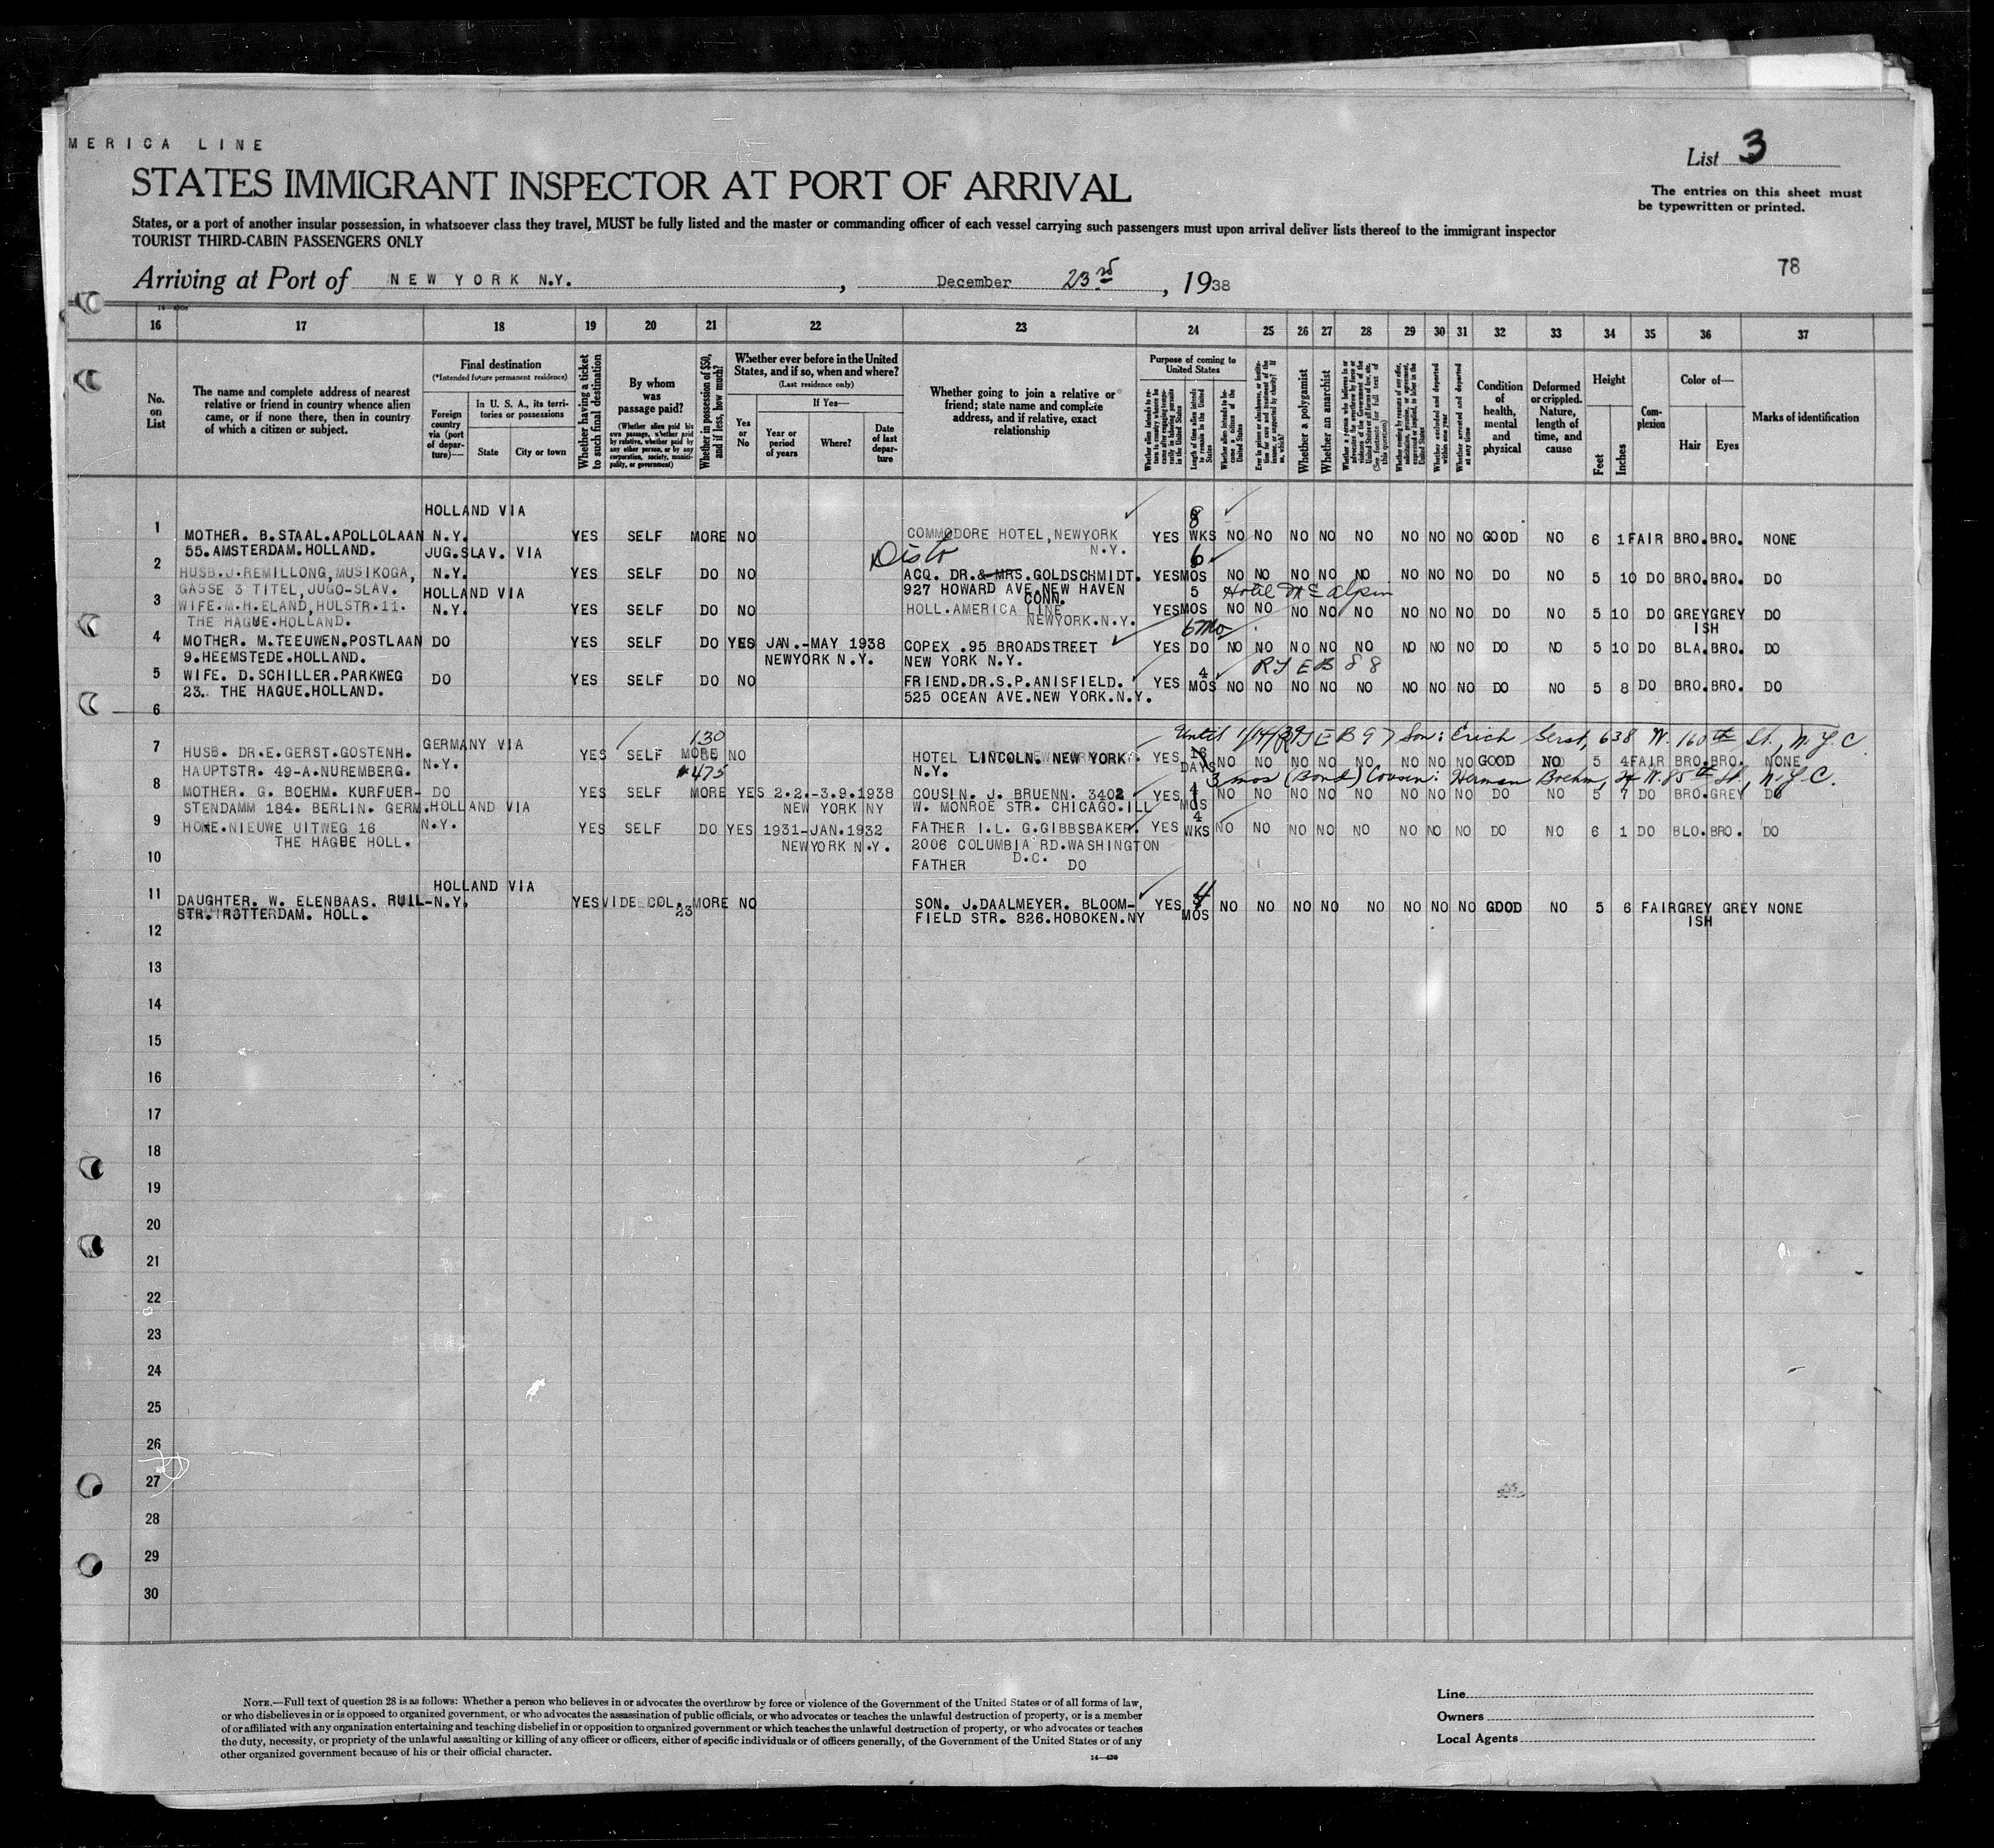 MERICA LINE
List 3
STATES IMMIGRANT INSPECTOR AT PORT OF ARRIVAL
The entries on this sheet must
be typewritten or printed.
States, or a port of another insular possession, in whatsoever class they travel, MUST be fully listed and the master or commanding officer of each vessel carrying such passengers must upon arrival deliver lists thereof to the immigrant inspector
TOURIST THIRD-CABIN PASSENGERS ONLY
78
Arriving at Port of NEW YORK N.Y. , December 23rd , 1938
16 17 18 19 20 21 22 23 24 25 26 27 28 29 30 31 32 33 34 35 36 37
No. on List
The name and complete address of nearest relative or friend in country whence alien came, or if none there, then in country of which a citizen or subject.
Final destination
(*Intended future permanent residence)
Foreign country via (port of departure)—
In U. S. A., its territories or possessions
State
City or town
Whether having a ticket to such final destination
By whom was passage paid?
(Whether alien paid his own passage, whether paid by relative, whether paid by any other person, or by any corporation, society, municipality, or government)
Whether in possession of $50, and if less, how much?
Whether ever before in the United States, and if so, when and where?
(Last residence only)
Yes or No
If Yes—
Year or period of years
Where?
Date of last departure
Whether going to join a relative or friend; state name and complete address, and if relative, exact relationship
Purpose of coming to United States
Length of time alien intends to remain in the United States
Whether a polygamist
Whether an anarchist
Whether excluded and deported within one year
Whether arrested and deported at any time
Condition of health, mental and physical
Deformed or crippled. Nature, length of time, and cause
Height
Feet
Inches
Complexion
Color of—
Hair
Eyes
Marks of identification
HOLLAND VIA 8
1 MOTHER. B.STAAL.APOLLOLAAN N.Y. YES SELF MORE NO COMMODORE HOTEL,NEWYORK YES WKS NO NO NO NO NO NO NO NO GOOD NO 6 1 FAIR BRO. BRO. NONE
55.AMSTERDAM.HOLLAND. JUG.SLAV. VIA N.Y. 6
2 HUSB.J.REMILLONG,MUSIKOGA, N.Y. YES SELF DO NO ACQ. DR.& MRS.GOLDSCHMIDT. YES MOS NO NO NO NO NO NO NO NO DO NO 5 10 DO BRO. BRO. DO
GASSE 3 TITEL,JUGO-SLAV. HOLLAND VIA 927 HOWARD AVE.NEW HAVEN CONN. 5 Hotel McAlpin
3 WIFE.M.H.ELAND,HULSTR.11. N.Y. YES SELF DO NO HOLL.AMERICA LINE YES MOS NO NO NO NO NO NO NO NO DO NO 5 10 DO GREYISH GREY DO
THE HAGUE.HOLLAND. NEWYORK.N.Y. 6 Mo
4 MOTHER. M.TEEUWEN.POSTLAAN DO YES SELF DO YES JAN.-MAY 1938 COPEX .95 BROADSTREET YES DO NO NO NO NO NO NO NO NO DO NO 5 10 DO BLA. BRO. DO
9.HEEMSTEDE.HOLLAND. NEWYORK N.Y. NEW YORK N.Y.
5 WIFE. D.SCHILLER.PARKWEG DO YES SELF DO NO FRIEND.DR.S.P.ANISFIELD. YES 4 MOS NO NO NO NO NO NO NO NO DO NO 5 8 DO BRO. BRO. DO
23. THE HAGUE.HOLLAND. 525 OCEAN AVE.NEW YORK.N.Y.
6
Until 1/14/39 Son: Erich Gerst, 638 W. 160th St., N.Y.C.
GERMANY VIA 130
7 HUSB. DR.E.GERST.GOSTENH. N.Y. YES SELF MORE NO HOTEL LINCOLN. NEW YORK. YES DAYS NO NO NO NO NO NO NO NO GOOD NO 5 4 FAIR BRO. BRO. NONE
HAUPTSTR. 49-A.NUREMBERG. $475 N.Y. 3 mos (Bond) Cousin: Herman Boehm, W. 85th St., N.Y.C.
8 MOTHER. G. BOEHM. KURFUER- DO YES SELF MORE YES 2.2.-3.9.1938 COUSIN. J. BRUENN. 3402 YES MOS NO NO NO NO NO NO NO NO DO NO 5 7 DO BRO. GREY DO
STENDAMM 184. BERLIN. GERM. HOLLAND VIA NEW YORK NY W. MONROE STR. CHICAGO.ILL
9 HOME.NIEUWE UITWEG 16 N.Y. YES SELF DO YES 1931-JAN.1932 FATHER I.L. G.GIBBSBAKER. YES 4 WKS NO NO NO NO NO NO NO NO DO NO 6 1 DO BLO. BRO. DO
THE HAGUE HOLL. NEWYORK N.Y. 2006 COLUMBIA RD.WASHINGTON D.C.
10 FATHER DO
HOLLAND VIA
11 DAUGHTER. W. ELENBAAS. RUIL- N.Y. YES VIDE COL. 23 MORE NO SON. J.DAALMEYER. BLOOM- YES 4 MOS NO NO NO NO NO NO NO NO GOOD NO 5 6 FAIR GREYISH GREY NONE
STR. ROTTERDAM. HOLL. FIELD STR. 826.HOBOKEN.NY
12
13
14
15
16
17
18
19
20
21
22
23
24
25
26
27
28
29
30
NOTE.—Full text of question 28 is as follows: Whether a person who believes in or advocates the overthrow by force or violence of the Government of the United States or of all forms of law,
or who disbelieves in or is opposed to organized government, or who advocates the assassination of public officials, or who advocates or teaches the unlawful destruction of property, or is a member
of or affiliated with any organization entertaining and teaching disbelief in or opposition to organized government or which teaches the unlawful destruction of property, or who advocates or teaches
the duty, necessity, or propriety of the unlawful assaulting or killing of any officer or officers, either of specific individuals or of officers generally, of the Government of the United States or of any
other organized government because of his or their official character.
14—430
Line
Owners
Local Agents